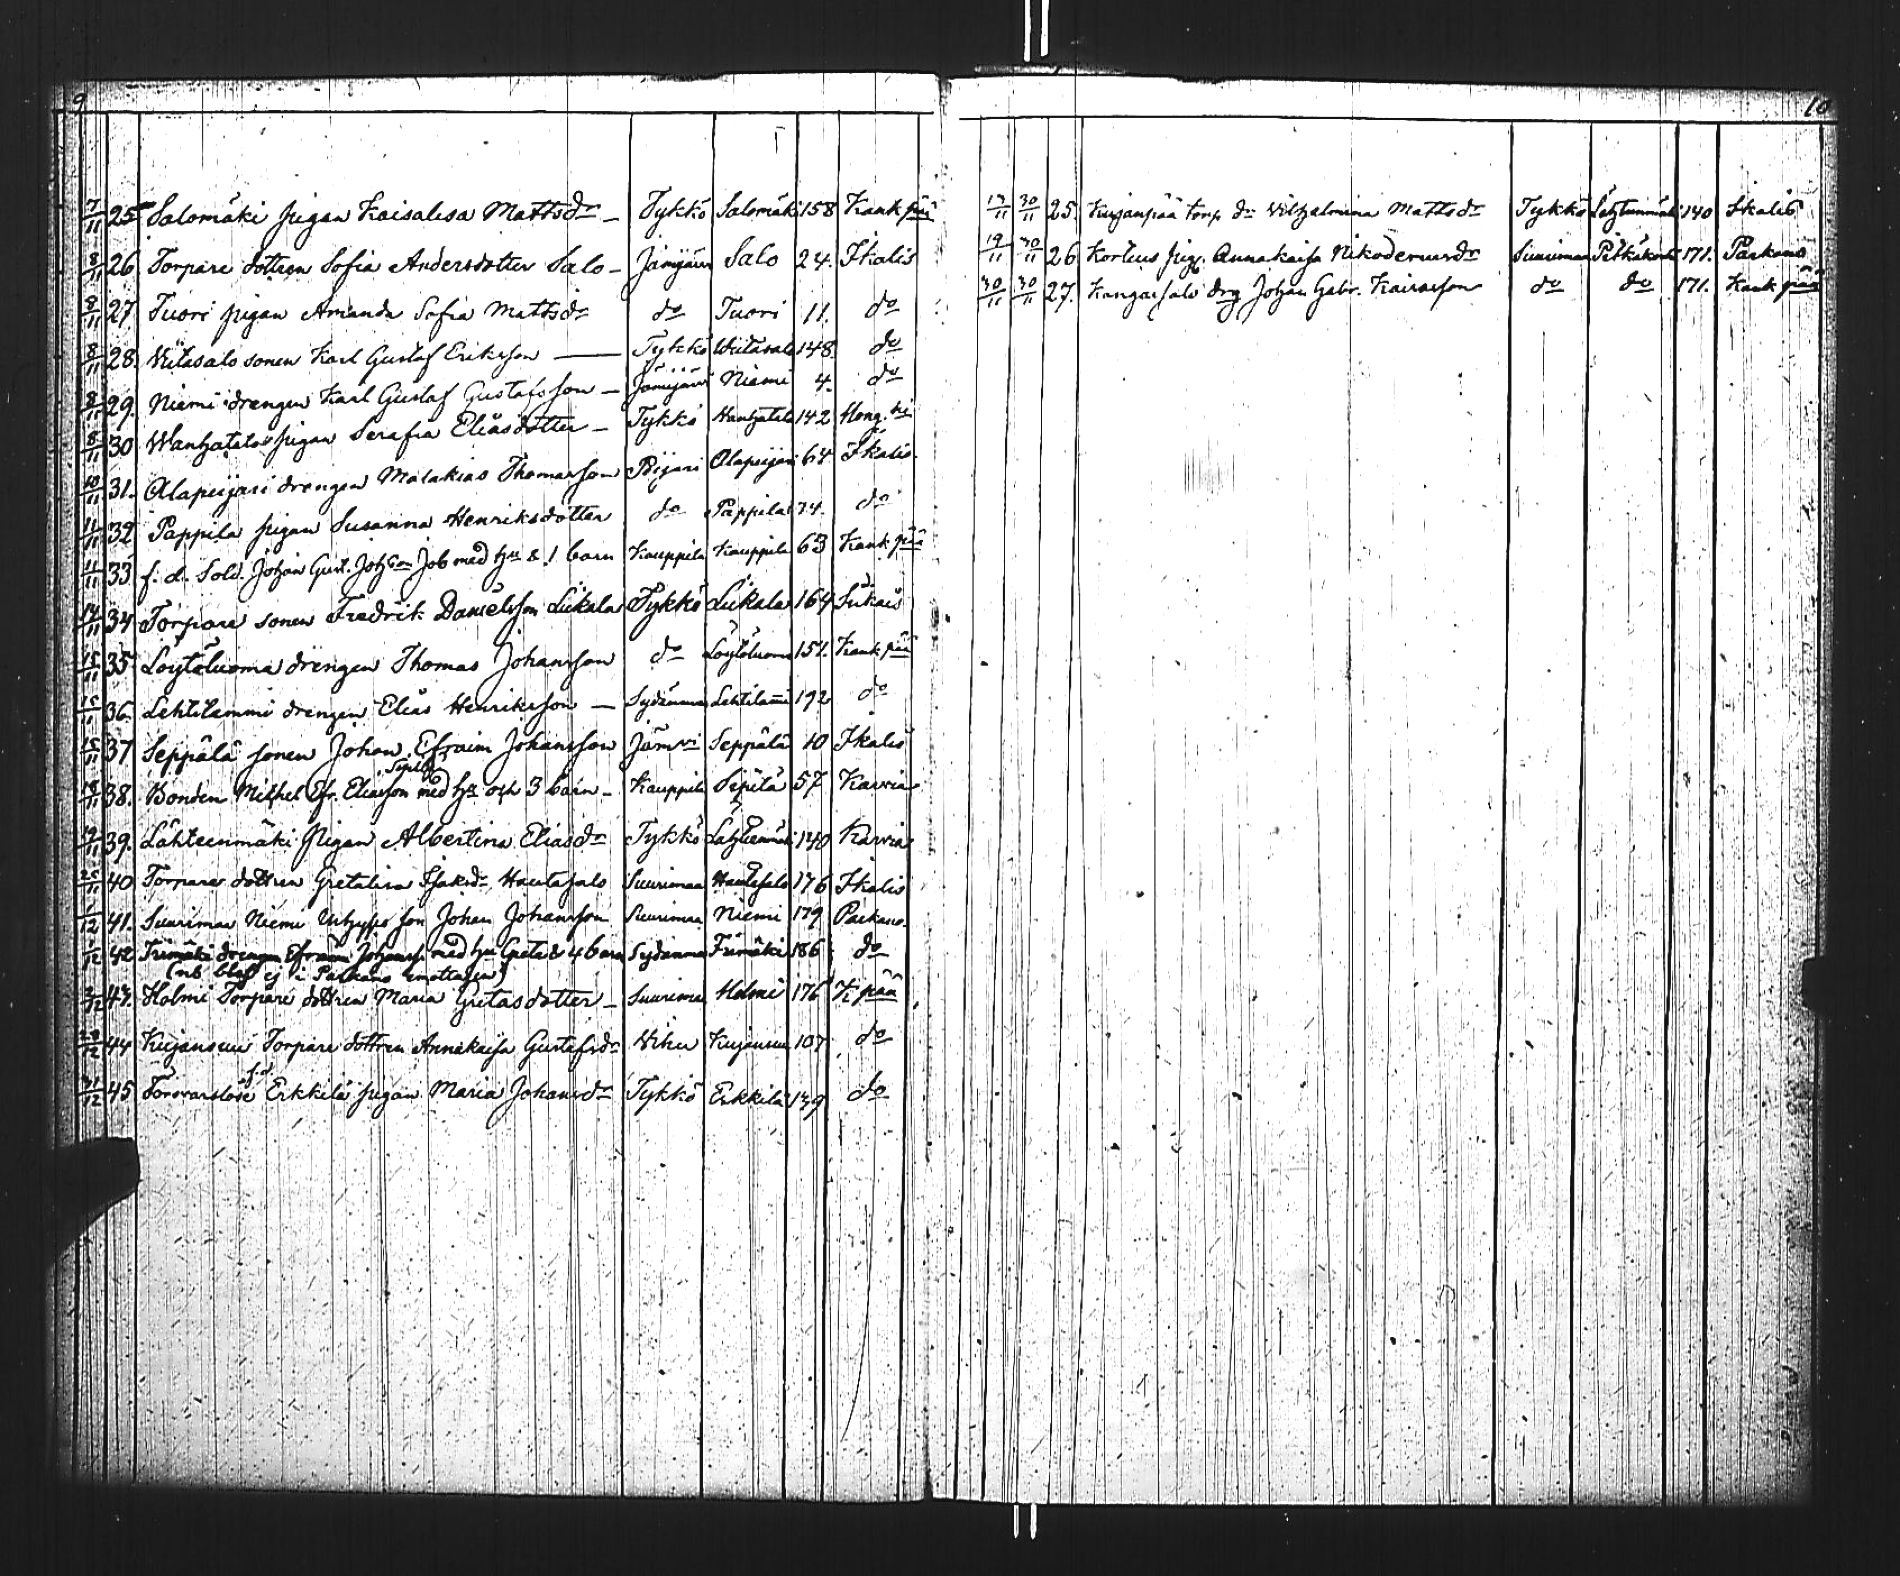 9
7/11 25 Salomäki pigan Kaisalisa Mattsdr – Tykkö Salomäki 158 Kankpää
8/11 26 Torpare dottren Sofia Andersdotter Salo – Jämijärvi Salo 24. Ikalis
8/11 27. Tuori pigan Amanda Sofia Mattsdr do Tuori 11. do
8/11 28. Wiitasalo sonen Karl Gustaf Eriksson — Tykkö Wiitasalo 148. do
8/11 29. Niemi drengen Karl Gustaf Gustafsson – Jämijärvi Niemi 4. do
8/11 30 Wanhatalo pigan Serafia Eliasdotter – Tykkö Wanhatalo 142 Hong.ki
10/11 31. Alapeijari drengen Malakias Thomasson Peijari Alapeijari 64. Ikalis
11/11 32 Pappila pigan Susanna Henriksdotter do Pappila 74. do
11/11 33 f. d. Sold. Johan Gust. Johson Job med hu & 1 barn Kauppila Kauppila 63 Kankpää
14/11 34 Torpare sonen Fredrik Danielsson Liikala Tykkö Liikala 164 Siikais
15/11 35 Löytöluoma drengen Thomas Johansson do Löytöluoma 151. Kankpää
15/11 36. Lehtilammi drengen Elias Henriksson — Sydänmaa Lehtilammi 192 do
15/11 37 Seppälä sonen Johan Efraim Johansson Jämvi Seppälä 10 Ikalis
18/11 38. Bonden Mikhel Efr. Eliasson Sipilä med hu och 3 barn – Kauppila Sipilä 57 Karvia
19/11 39. Lähteenmäki Pigan Albertina Eliasdr Tykkö Lähteenmäki 140 Karvia
25/11 40 Torpare dottren Gretalisa Isaksdr Hautasalo Suurimaa Hautasalo 176 Ikalis
1/12 41. Suurimaa Niemi Inhyses son Johan Johansson Suurimaa Niemi 179 Parkano.
1/12 42 Trimäki drengen Efraim Johanss. med hu Greta & 4 barn Sydänmaa Trimäki 186 do
(nb blef ej i Parkano emottagen)
2/12 43. Holmi Torpare dottren Maria Gretasdotter – Suurimaa Holmi 176 K:pää
28/12 44 Kujansuu Torpare dottren Annakajsa Gustafsdr Wihu Kujansuu 107 do
31/12 45 Försvarslöse f.d. Erkkilä pigan Maria Johansdr Tykkö Erkkilä 139 do
10
17/11 30/11 25. Kurjanpää torp dr Wilhelmina Mattsdr Tykkö Lähteenmäki 140 Ikalis
19/11 30/11 26 Kortius pig. Annakajsa Nikodemusdr Suurimaa Pitkäkoski 171. Parkano
30/11 30/11 27. Kangassalo drg Johan Gabr. Kaisasson do do 171. Kankpää